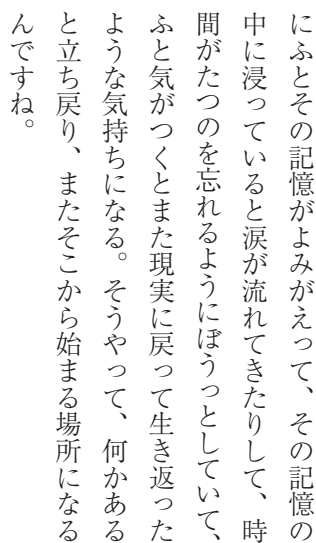 にふとその記憶がよみがえって、その記憶の
中に浸っていると涙が流れてきたりして、時
間がたつのを忘れるようにぼうっとしていて、
ふと気がつくとまた現実に戻って生き返った
ような気持ちになる。そうやって、何かある
と立ち戻り、またそこから始まる場所になる
んですね。